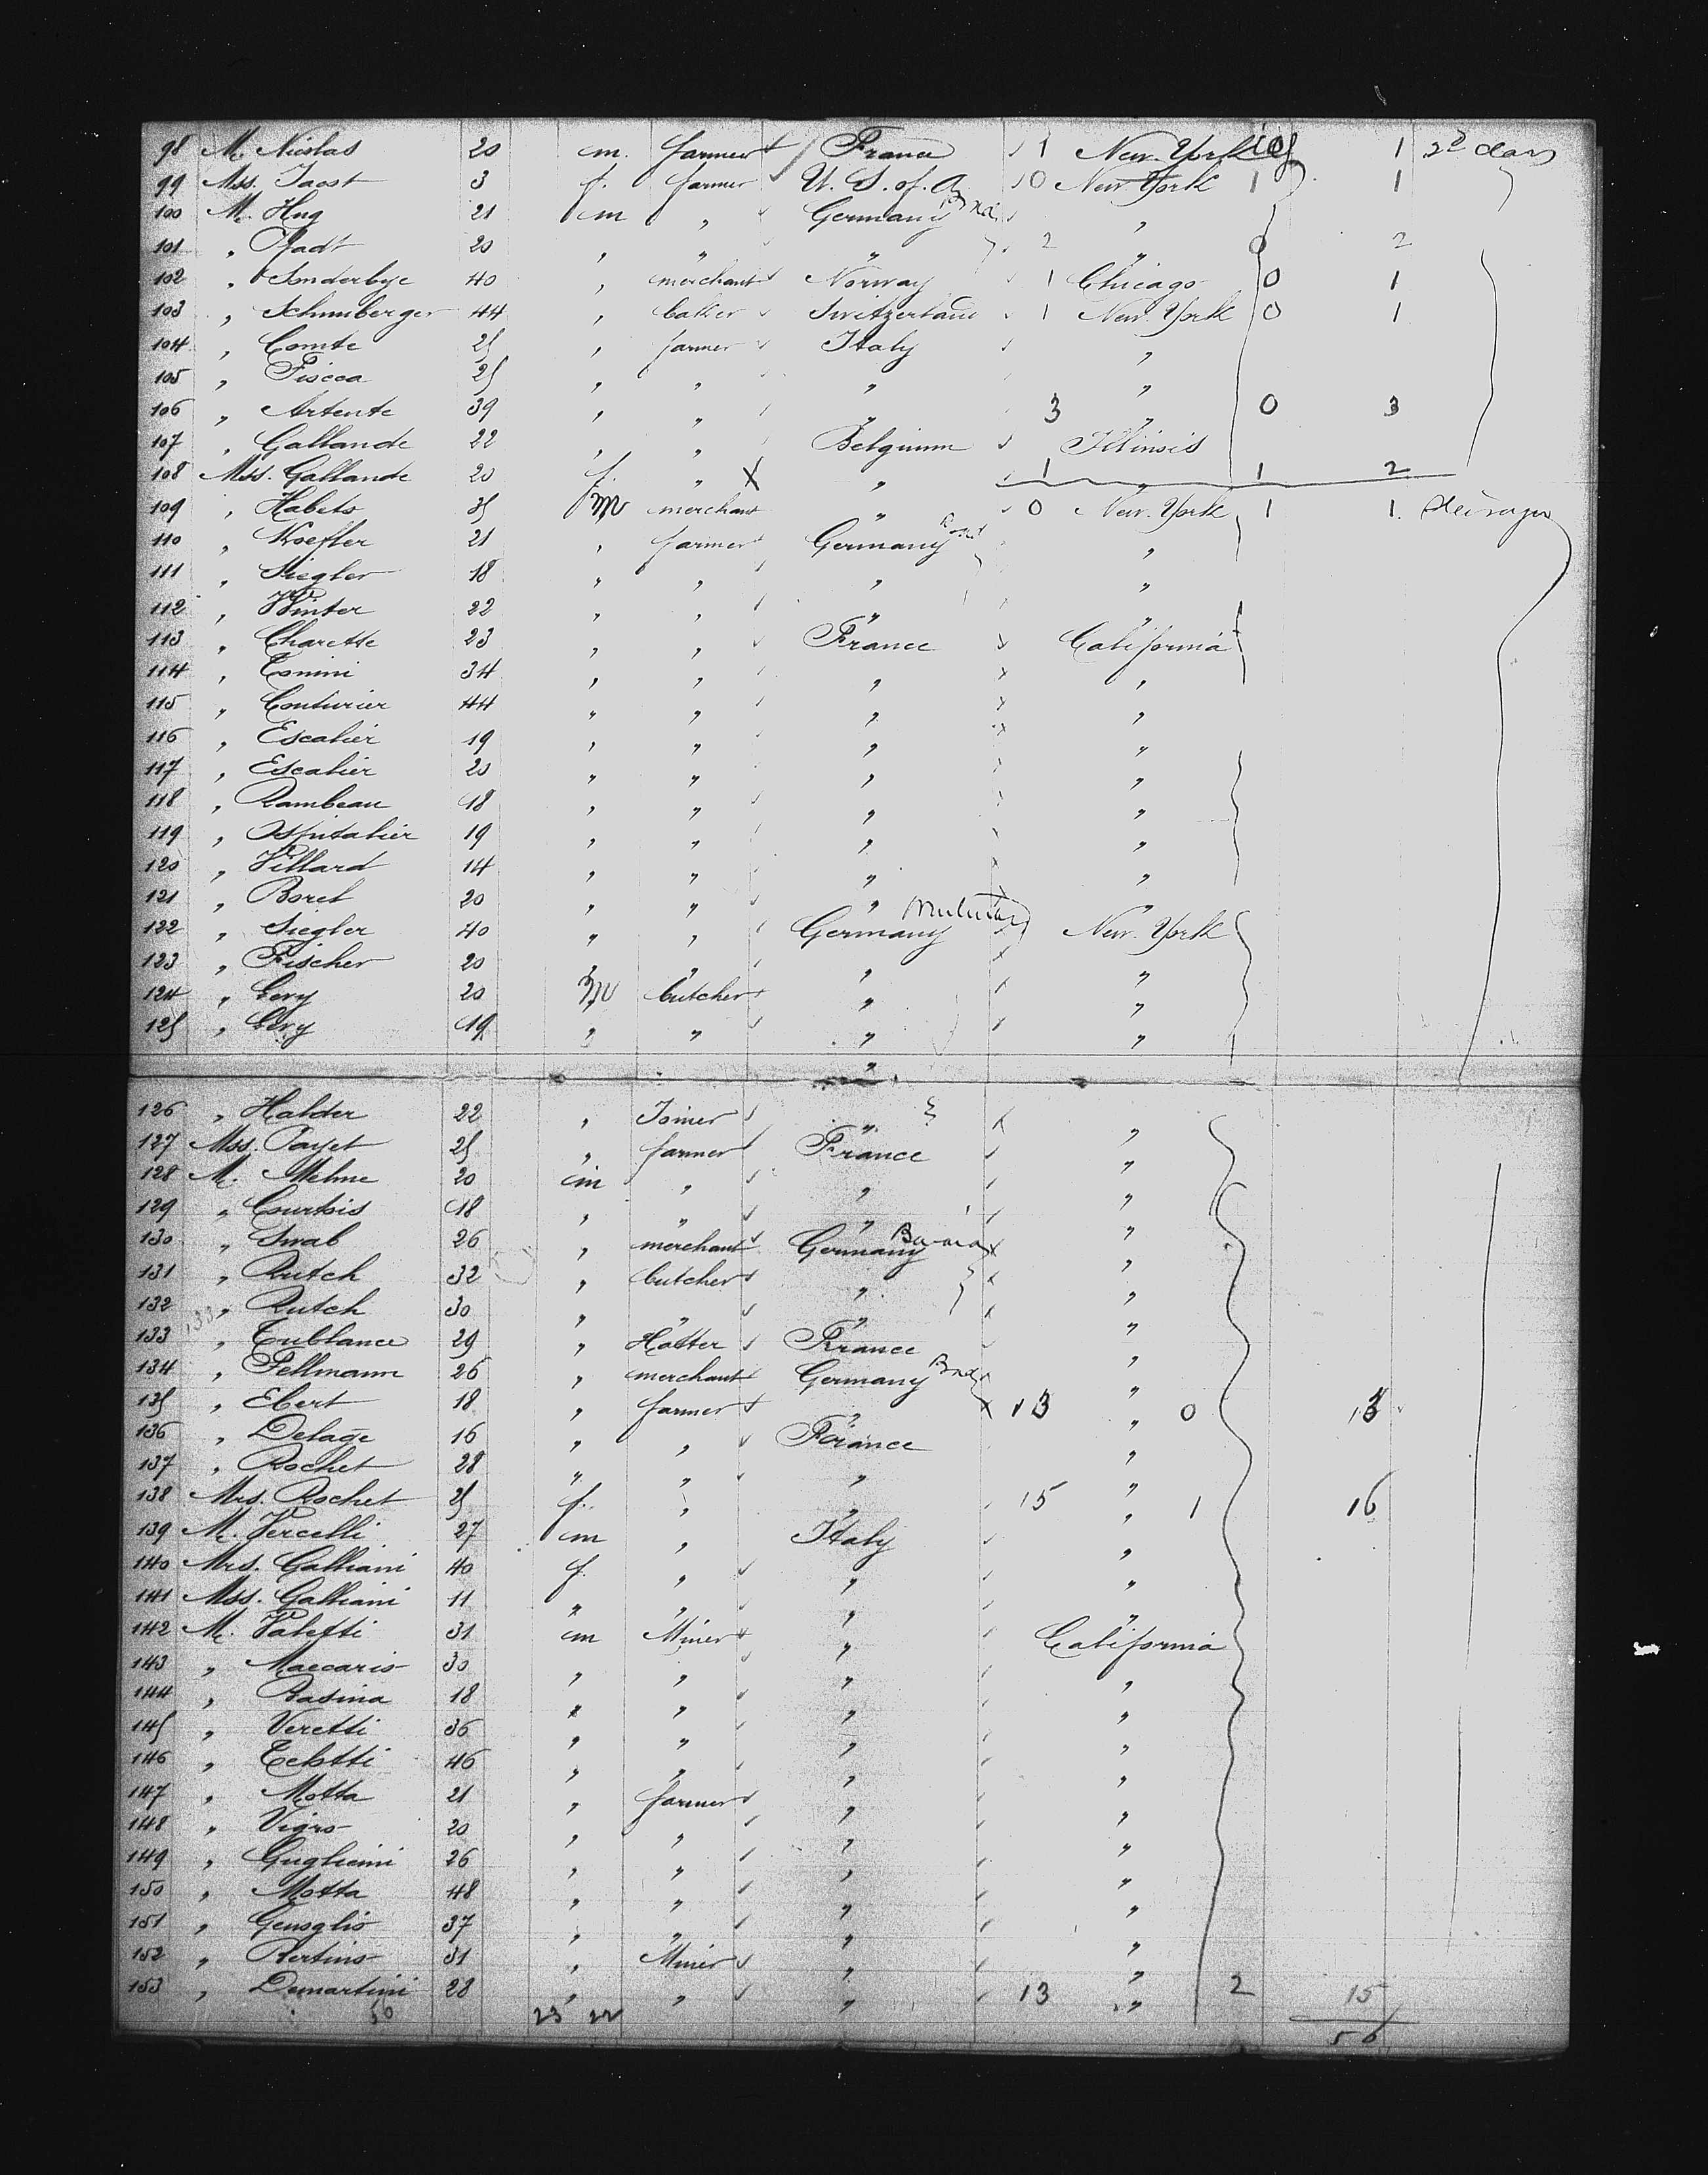 98 M. Nicolas 20 m. farmer France 1 New-York 1 2d class
99 Mss. Jaost 3 f. farmer U. S. of. A 0 New York 1 1
100 M. Hug 21 m " Germany "
101 " 20 " " " 2 " 0 2
102 " Sonderbye 40 " merchant Norway 1 Chicago 0 1
103 " Schnuberger 44 " baker Switzerland 1 New-York 0 1
104 " Comte 25 " farmer Italy "
105 " Fiscca 25 " " " "
106 " Artente 39 " " " 3 " 0 3
107 " Gallande 22 " " Belgium Illinois
108 Mss. Gallande 20 f. " " 1 " 1 2
109 " Habets 35 m merchant " 0 New-York 1 1
110 " Koefler 21 " farmer Germany "
111 " Siegler 18 " " " "
112 " Winter 22 " " " "
113 " Charette 23 " " France California
114 " Tonini 34 " " " "
115 " Couturier 44 " " " "
116 " Escalier 19 " " " "
117 " Escalier 20 " " " "
118 " Rambeau 18 " " " "
119 " Ospitalier 19 " " " "
120 " Villard 14 " " " "
121 " Borel 20 " " " "
122 " Siegler 40 " " Germany New-York
123 " Fischer 20 " " " "
124 " Levy 20 m butcher " "
125 " Levy 19 " " " "
126 " Halder 22 " Joiner " "
127 Mss. Payet 25 " farmer France "
128 M. Melme 20 m " " "
129 " Courtois 18 " " " "
130 " Swab 26 " merchant Germany "
131 " Rutch 32 " butcher " "
132 " Rutch 30 " " " "
133 " Tublance 29 " Hatter France "
134 " Fellmann 26 " merchant Germany "
135 " Ebert 18 " farmer " 13 " 0 13
136 " Delage 16 " " France "
137 " Rochet 28 " " " "
138 Mrs. Rochet 25 f. " " 15 " 1 16
139 M. Vercelli 27 m " Italy "
140 Mrs. Galliani 40 f. " " "
141 Mss. Galliani 11 " " " "
142 M. Valetti 31 m Miner " California
143 " Maccario 30 " " " "
144 " Rasina 18 " " " "
145 " Veretti 36 " " " "
146 " Telotti 46 " " " "
147 " Motta 21 " farmer " "
148 " Vigro 20 " " " "
149 " Guglieini 26 " " " "
150 " Motta 48 " " " "
151 " Gensglio 37 " " " "
152 " Bertino 31 " Miner " "
153 " Demartini 28 " " " 13 " 2 15
50 23 22 56